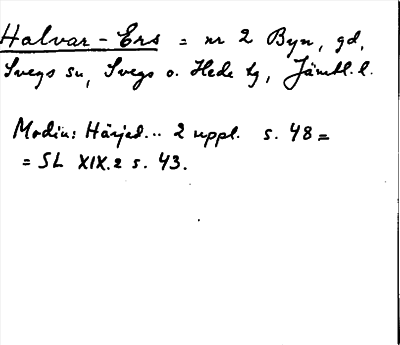 Halvar-Ers = nr 2 Byn, gd,
Svegs sn, Svegs o. Hede tg, Jämtl. l.
Modin: Härjed... 2 uppl. s. 48 =
= SL XIX.2 s. 43.